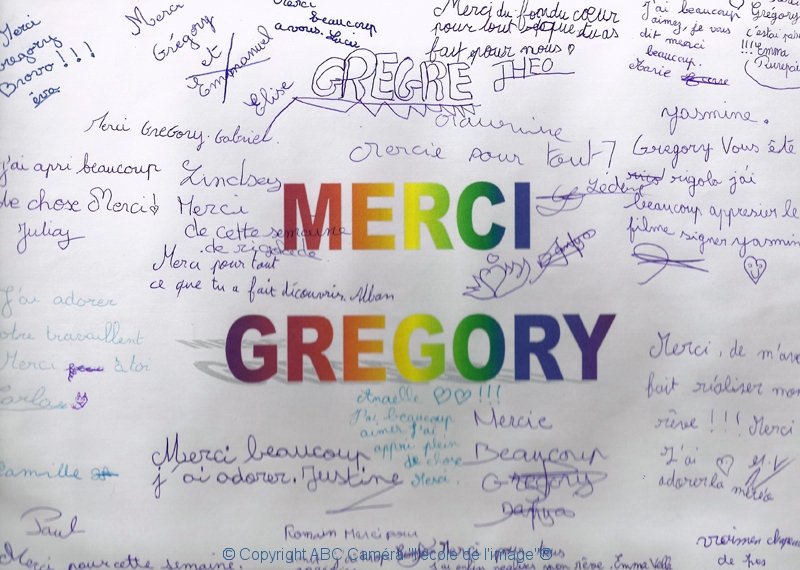 Merci
Gregory
Bravo !!!
éva
Merci
Grégory
et
Emmanuel
Merci
beaucoup
a vous. Lucie
Elise
Merci du fond du cœur
pour tout que tu as
fait pour nous
THEO
GREGRE
J'ai beaucoup
aimez, je vous
dit merci
beaucoup.
Marie
Grégory
!!! Emma
Merci GreGory. Gabriel.
mercie pour tout
yasmine.
Gregory Vous ête
rigolo j'ai
beaucoup appresier le
filme signer yasmin
j'ai apri beaucoup
de chose Merci!
Juliay
Lindsey
Merci
de cette semaine
de rigolade
MERCI
Merci pour tout
ce que tu a fait découvrir. Alban
J'ai adorer
otre travaillent
Merci à toi
Carla
GREGORY
Merci, de m'av
fait réaliser mon
rêve !!! Merci
J'ai
adorer la
Anaelle !!!
J'ai beaucoup
aimer J'ai
appri plein
de chose
Merci.
Mercie
Beaucoup
Gregory
Dafya
Merci beaucoup
j'ai adorer. Justine
Camille
Paul
Merci pour cette semaine.
Romain Merci pour
de pas
© Copyright ABC Caméra "l'école de l'image"®
Emma Vella